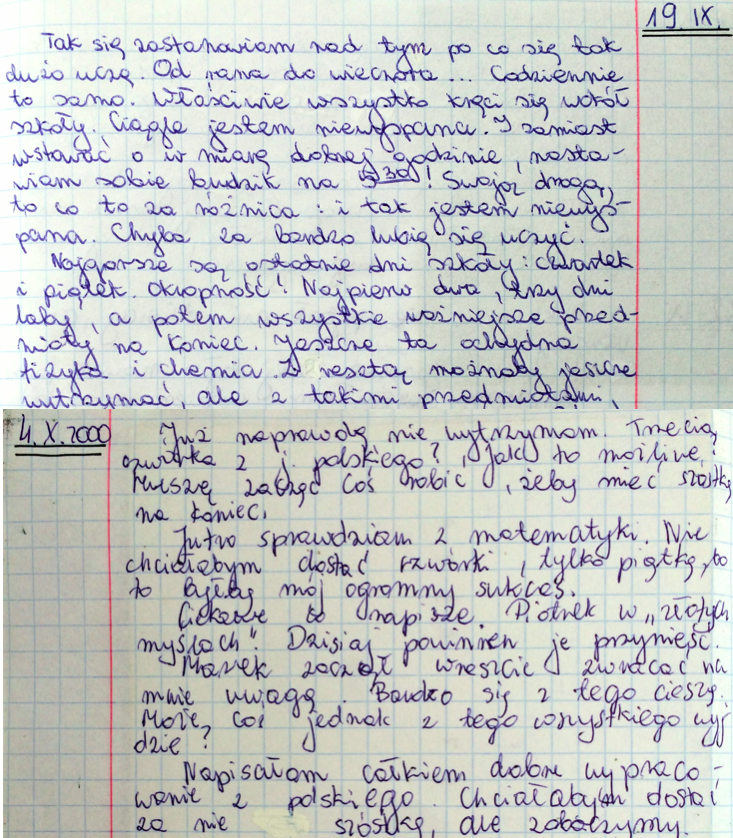 19. IX.
Tak się zastanawiam nad tym po co się tak
dużo uczę. Od rana do wieczora... Codziennie
to samo. Właściwie wszystko kręci się wokół
szkoły. Ciągle jestem niewyspana. I zamiast
wstawać o w miarę dobrej godzinie, nasta-
wiam sobie budzik na 5 30! Swoją drogą,
to co to za różnica: i tak jestem niewys-
pana. Chyba za bardzo lubię się uczyć.
Najgorsze są ostatnie dni szkoły: czwartek
i piątek. Okropność! Najpierw dwa, trzy dni
laby, a potem wszystkie ważniejsze przed-
mioty na koniec. Jeszcze ta ochydna
fizyka i chemia. Z resztą możnaby jeszcze
wytrzymać, ale z takimi przedmiotami,
4. X. 2000
Już naprawdę nie wytrzymam. Trzecia
czwórka z j. polskiego?, jak to możliwe?
Muszę zacząć coś robić, żeby mieć szóstkę
na koniec.
Jutro sprawdzian z matematyki. Nie
chciałabym dostać czwórki, tylko piątkę, bo
to byłby mój ogromny sukces.
Ciekawe co napisze Piotrek w „złotych
myślach". Dzisiaj powinien je przynieść.
Marek zaczął wreszcie zwracać na
mnie uwagę. Bardzo się z tego cieszę.
Może coś jednak z tego wszystkiego wyj
dzie?
Napisałam całkiem dobre wypraco-
wanie z polskiego. Chciałabym dostać
za nie szóstkę, ale zobaczymy.